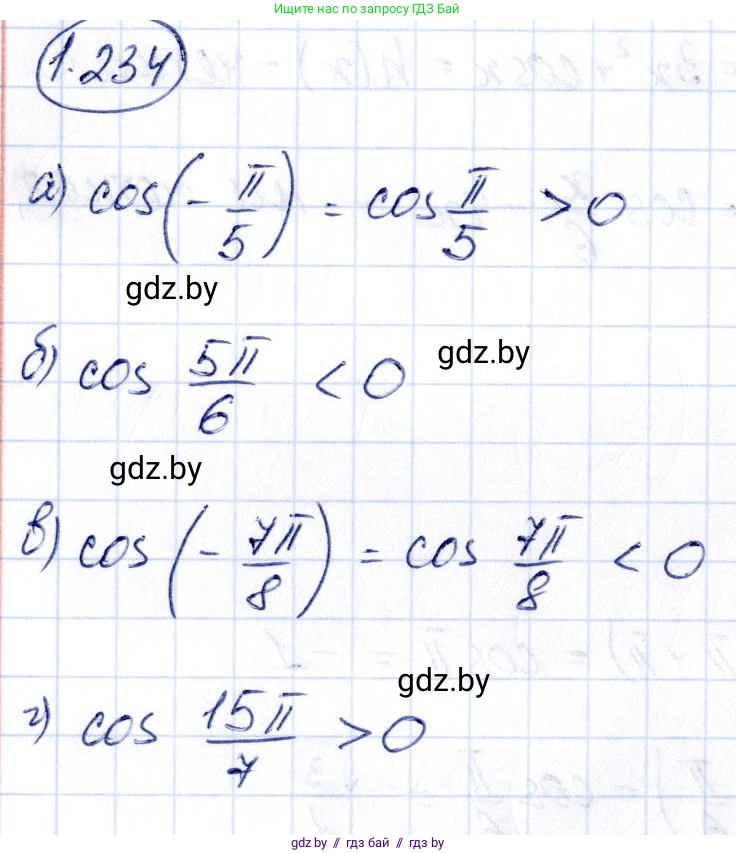 Ищите нас по запросу ГДЗ Бай
1.234
а) cos(-π/5) = cos π/5 > 0
gdz.by
gdz.by
б) cos 5π/6 < 0
gdz.by
в) cos(-7π/8) = cos 7π/8 < 0
gdz.by
г) cos 15π/7 > 0
gdz.by // гдз бай // гдз by